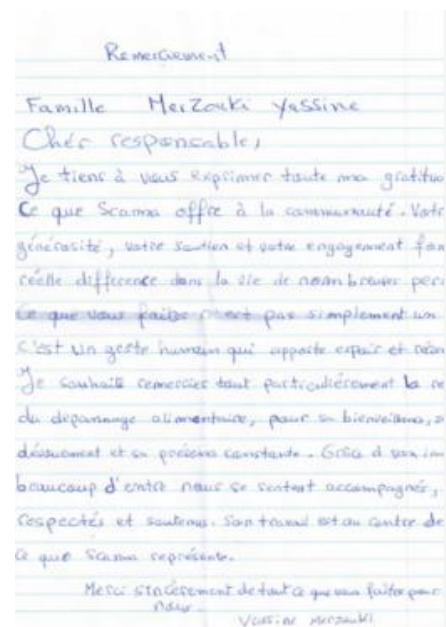 Remerciement
Famille Merzouki Yassine
Cher responsable,
Je tiens à vous exprimer toute ma gratitu
Ce que Scama offre à la communauté. Votr
générosité, votre soutien et votre engagement fon
réelle différence dans la vie de nombreuses per
Ce que vous faites n'est pas simplement un
C'est un geste humain qui apporte espoir et
Je souhaite remercier tout particulièrement la re
du dépannage alimentaire, pour sa bienveillance, s
dévouement et sa présence constante. Grâce à son im
beaucoup d'entre nous se sentent accompagnés,
respectés et soutenus. Son travail est au centre de
ce que Scama représente.
Merci sincèrement de tout ce que vous faites pour
nous.
Yassine Merzouki